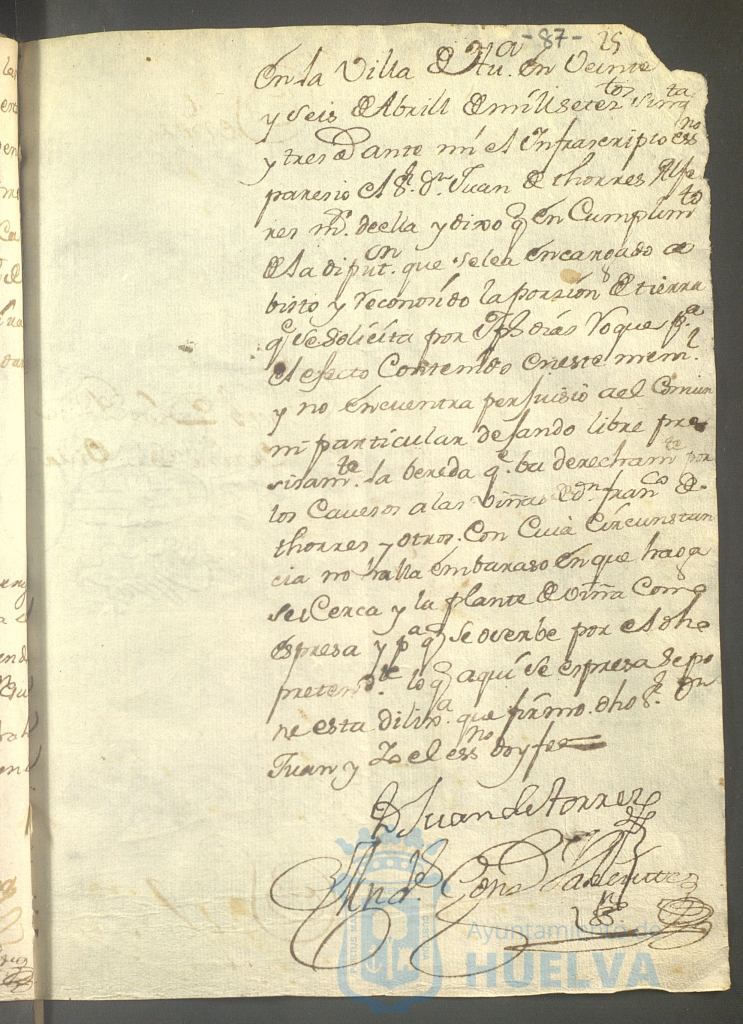 -87- 25
En la Villa de Hua. en Veinte
y seis de Abrill de mill setez.tos sinq.ta
y tres D ante mi el Infrascripto ess.no
paresio el S.r d.n Juan de thorres Alfe
res m.r de ella y dixo q en Cumplim.to
de la diput.on que se lea encargado a
bisto y reconosido la porsion de tierra
q.e se solisita por Jph dias Roque p.a
el efecto Contenido en este mem.l
y no encuentra perjuisio a el Comun
ni particular dejando libre pre
sisam.te la bereda q.e ba derecham.te por
los Cavesos a las Viñas de d.n fran.co de
thorres y otros. Con Cuia Circunstan
cia no halla embaraso en que haga
se Cerca y la plante de Viña Como
espresa y p.a q se oserbe por el dho
pretend.te lo q aqui se espresa se po
ne esta dilix.a que firmo. dho S.r D.n
Juan y Yo el ess.no doy fee
D Juan de torres
Gons
Ayuntamiento de
HUELVA